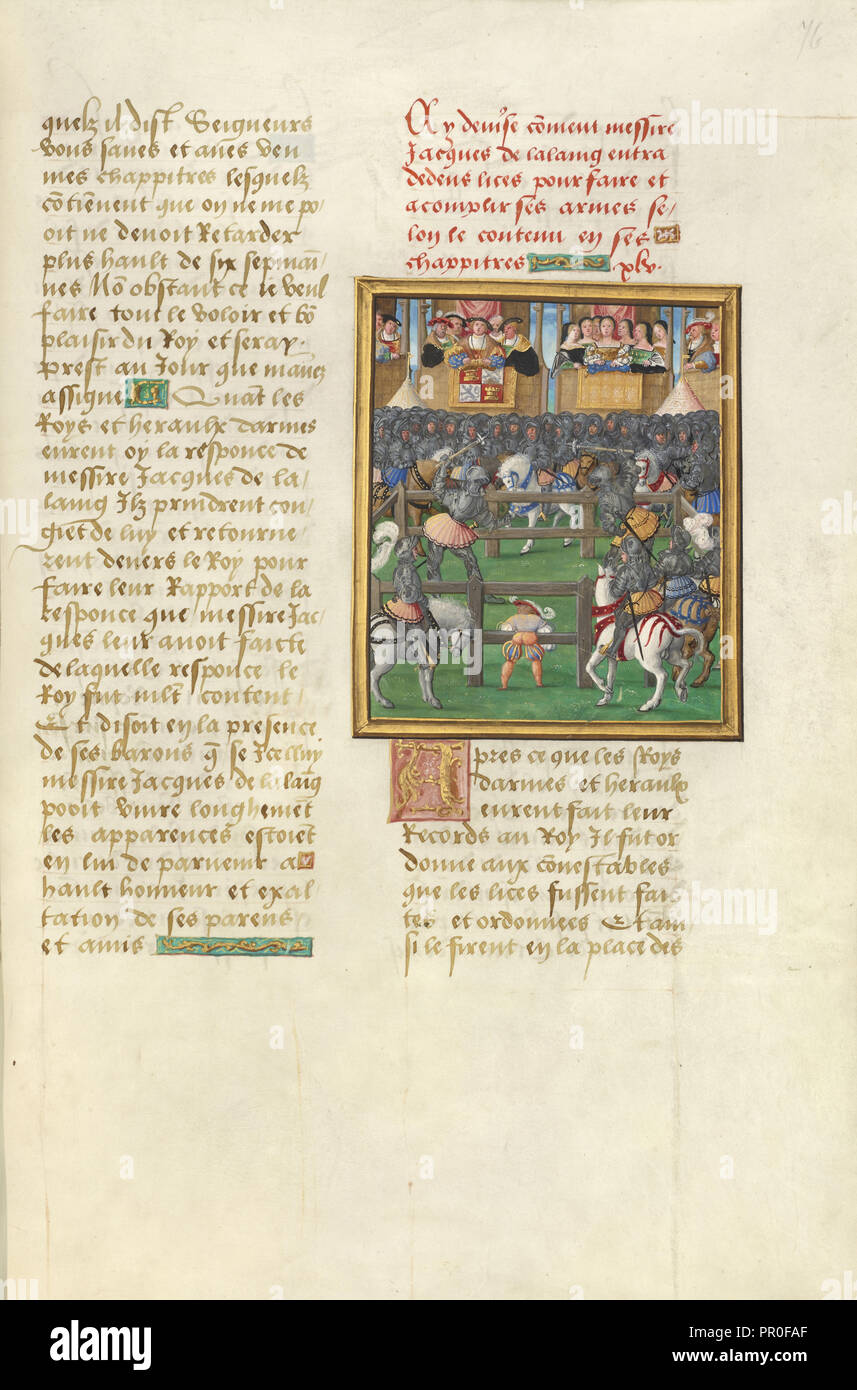 76
quelz il dist Seigneurs
vous saves et aues veu
mes chappitres lesquelz
cōtiēnent que on ne me po/
oit ne deuoit Retarder
plus hault de six sepmaī/
nes Nō obstant ce ie veul
faire tout le voloir et bō
plaisir du Roy et seray
prest au Jour que maues
assigne Quāt les
Roys et heraulx darmes
eurent oy la responce de
messire Jacques de la/
laing Ilz prindrent con/
giet de luy et retourne/
rent deuers le Roy pour
faire leur Rapport de la
responce que messire Jac/
ques leur auoit faicte
de laquelle responce le
Roy fut mlt content
Et disoit en la presence
de ses barons q̄ se Jcelluy
messire Jacques de lalaīg
pooit viure longhemēt
les apparences estoiēt
en lui de paruenir a
hault honneur et exal/
tation de ses parens
et amis
Cy deuise cōment messire
Jacques de lalaing entra
dedens lices pour faire et
acomplir ses armes se/
lon le contenu en ses
chappitres xlv.
Apres ce que les Roys
darmes et heraulx
eurent fait leur
Records au Roy Il fut or
donne aux cōnestables
que les lices fussent fai/
tes et ordonnees Et ain/
si le firent en la place des
alamy stock photo
PR0FAF
www.alamy.com